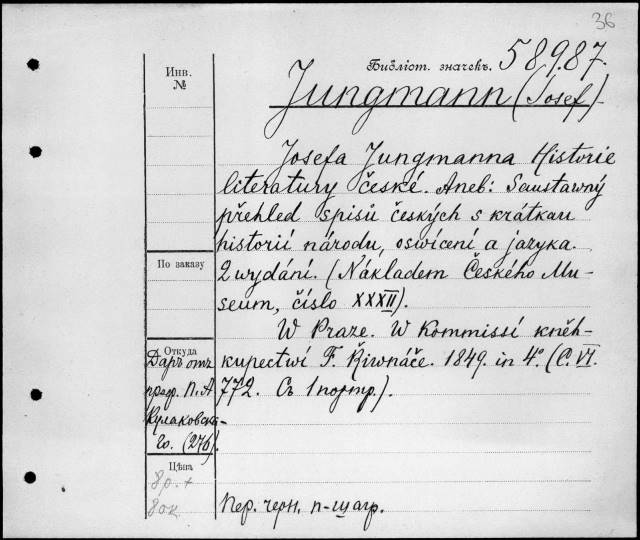 36
Библіот. значекъ. 58987.
Инв.
№
Jungmann (Josef).
Josefa Jungmanna Historie
literatury české. Aneb: Saustawný
přehled spisů českých s krátkau
historií národu, oswícení a jazyka.
2 wydání. (Nákladem Českého Mu-
seum, číslo XXXII).
W Praze. W Kommissí kněh-
kupectwí F. Řiwnáče. 1849. in 4°. (C. VI.
772. Съ 1 портр.).
По заказу
Откуда
Даръ отъ
проф. П. А
Кулаковска-
го. (276).
Цѣна
8р. +
80к
Пер. черн. п-шагр.